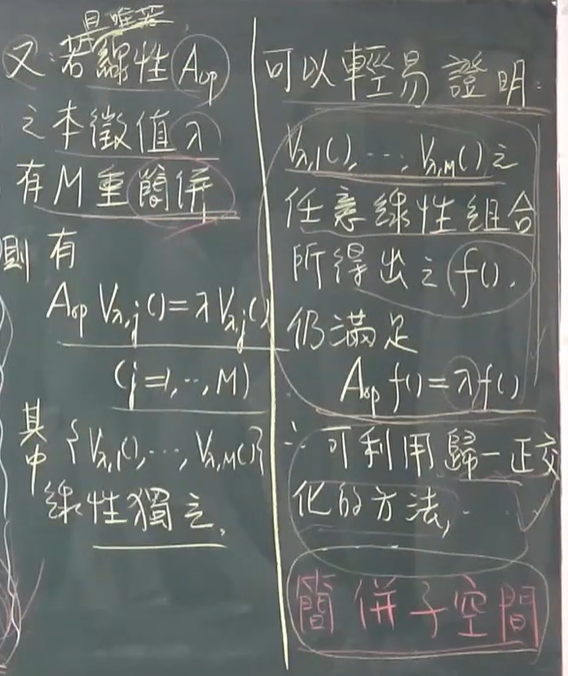 且唯若
又:若線性 Aop
之本徵值λ
有M重簡併
則 有
Aop Vλ,j()=λVλ,j()
(j=1,…,M)
其中 {Vλ,1(),…,Vλ,M()}
線性獨立,
可以輕易證明:
Vλ,1(),…,Vλ,M()之
任意線性組合
所得出之f(),
仍滿足
Aop f()=λf()
∴可利用歸一正交
化的方法,
簡併子空間